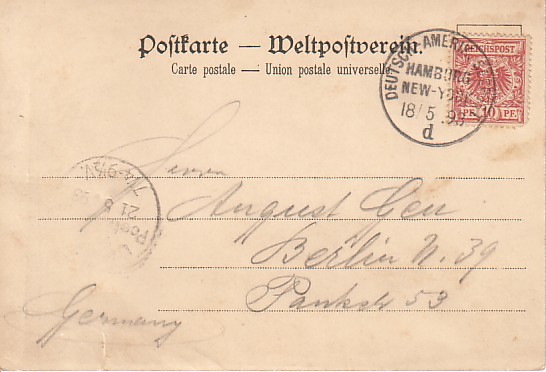 Postkarte — Weltpostverein.
Carte postale — Union postale universelle
DEUTSCH-AMERIK.
HAMBURG
NEW-YORK
18/5
d
REICHSPOST
PF. 10 PF.
7¼-9½V.
21 5
Herrn
August Geu
Berlin N. 39
Pankstr 53
Germany